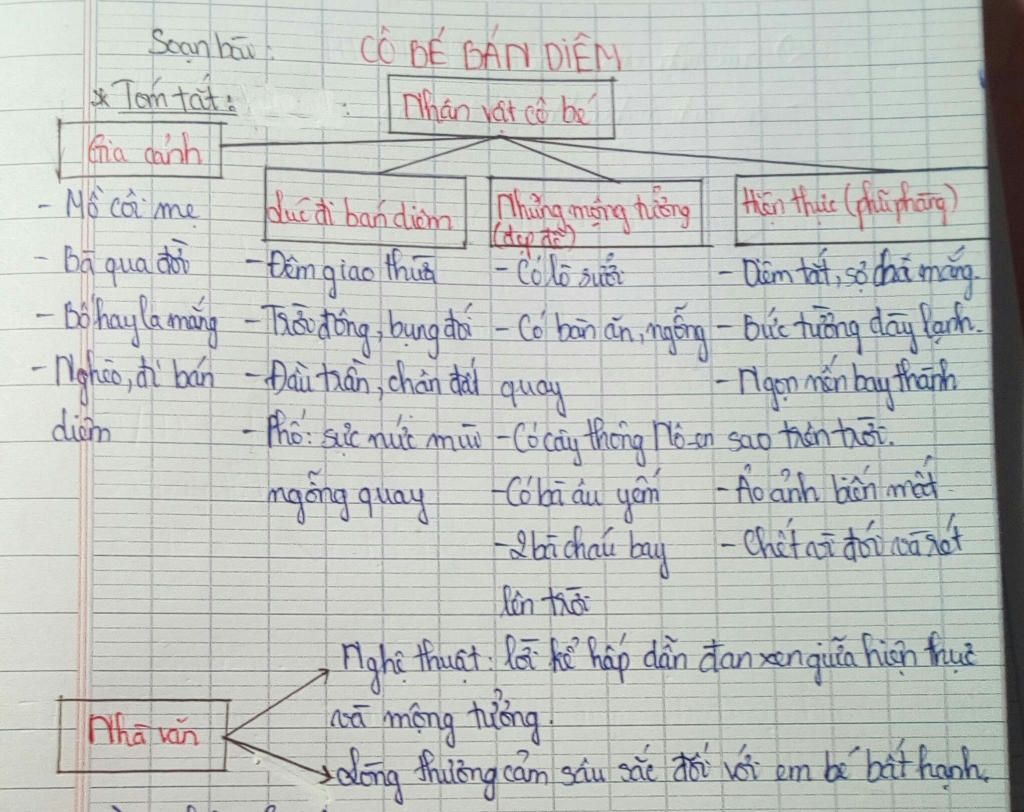 Soạn bài: CÔ BÉ BÁN DIÊM
* Tóm tắt:
Nhân vật cô bé
Gia cảnh
Lúc đi bán diêm
Những mộng tưởng (đẹp đẽ)
Hiện thực (phũ phàng)
- Mồ côi mẹ
- Bà qua đời
- Bố hay la mắng
- Nghèo, đi bán
diêm
- Đêm giao thừa
- Trời đông, bụng đói
- Đầu trần, chân đất
- Phố: sực nức mùi
ngỗng quay
- Có lò sưởi
- Có bàn ăn, ngỗng
quay
- Có cây thông Nô-en
- Có bà âu yếm
- 2 bà cháu bay
lên trời
- Diêm tắt, sợ cha mắng.
- Bức tường dày lạnh.
- Ngọn nến bay thành
sao trên trời.
- Ảo ảnh biến mất
- Chết vì đói và rét
Nhà văn
Nghệ thuật: lời kể hấp dẫn đan xen giữa hiện thực
và mộng tưởng.
Lòng thương cảm sâu sắc đối với em bé bất hạnh.